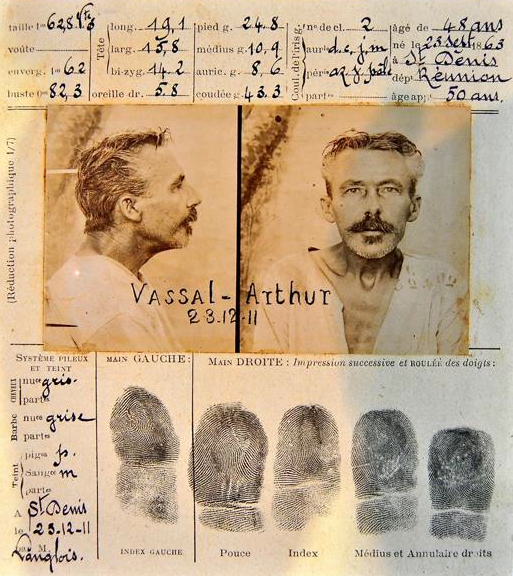 taille 1m 62,8
long. 19,1
pied g. 24,8
no de cl. 2
âgé de 48 ans
voûte
larg. 15,8
médius g. 10,9
aurle d.c.j.m
né le 23 sept. 1863
enverg. 1m 62
Tête
bi-zyg. 14,2
auric. g. 8,6
à St. Denis
dépt Réunion
buste 0m 82,3
oreille dr. 5,8
coudée g. 43,3
Coul. de l'iris g.
part
âge ap. 50 ans.
(Réduction photographique 1/7)
Vassal - Arthur
23.12.11
SYSTÈME PILEUX
ET TEINT
MAIN GAUCHE :
MAIN DROITE : Impression successive et ROULÉE des doigts :
CHEVEUX
nuce gris.
parts
Barbe
nuce grise
parts
Teint
pigre p.
Sangne m
parts
A St Denis
le 23-12-11
par M.
Langlois.
INDEX GAUCHE
Pouce
Index
Médius et Annulaire droits